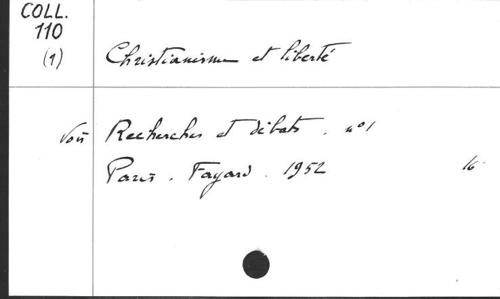 COLL.
110
(1)
Christianisme et liberté
Voir Recherches et débats. n°1
Paris. Fayard. 1952 16